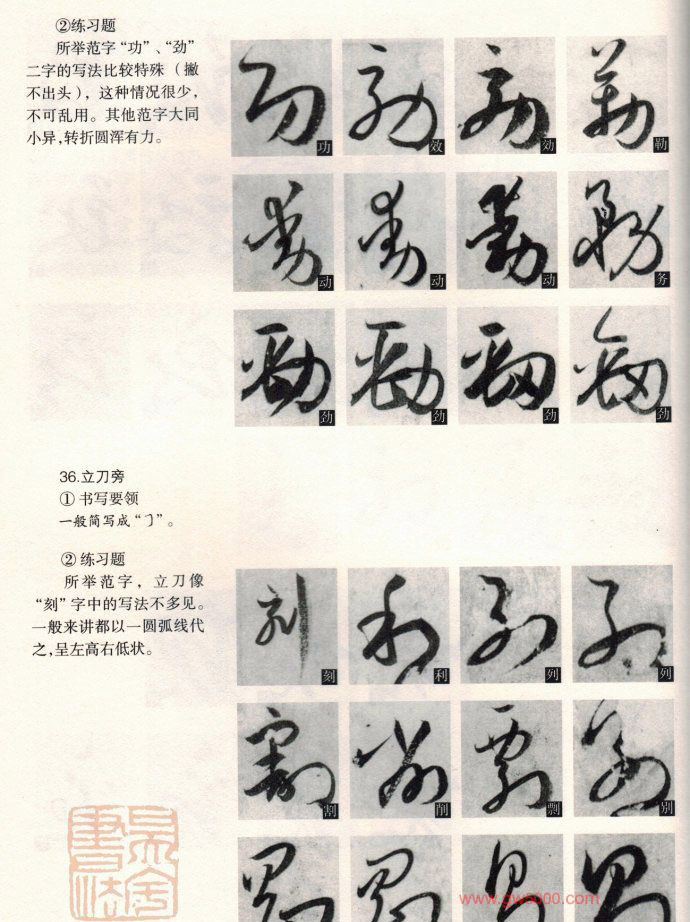 ②练习题
所举范字“功”、“劲”
二字的写法比较特殊（撇
不出头），这种情况很少，
不可乱用。其他范字大同
小异,转折圆浑有力。
功 效 効 勒
动 动 动 务
劲 劲 劲 劲
36.立刀旁
① 书写要领
一般简写成“㇆”。
② 练习题
所举范字，立刀像
“刻”字中的写法不多见。
一般来讲都以一圆弧线代
之,呈左高右低状。
刻 利 列 列
割 削 剽 别
www.gw5000.com